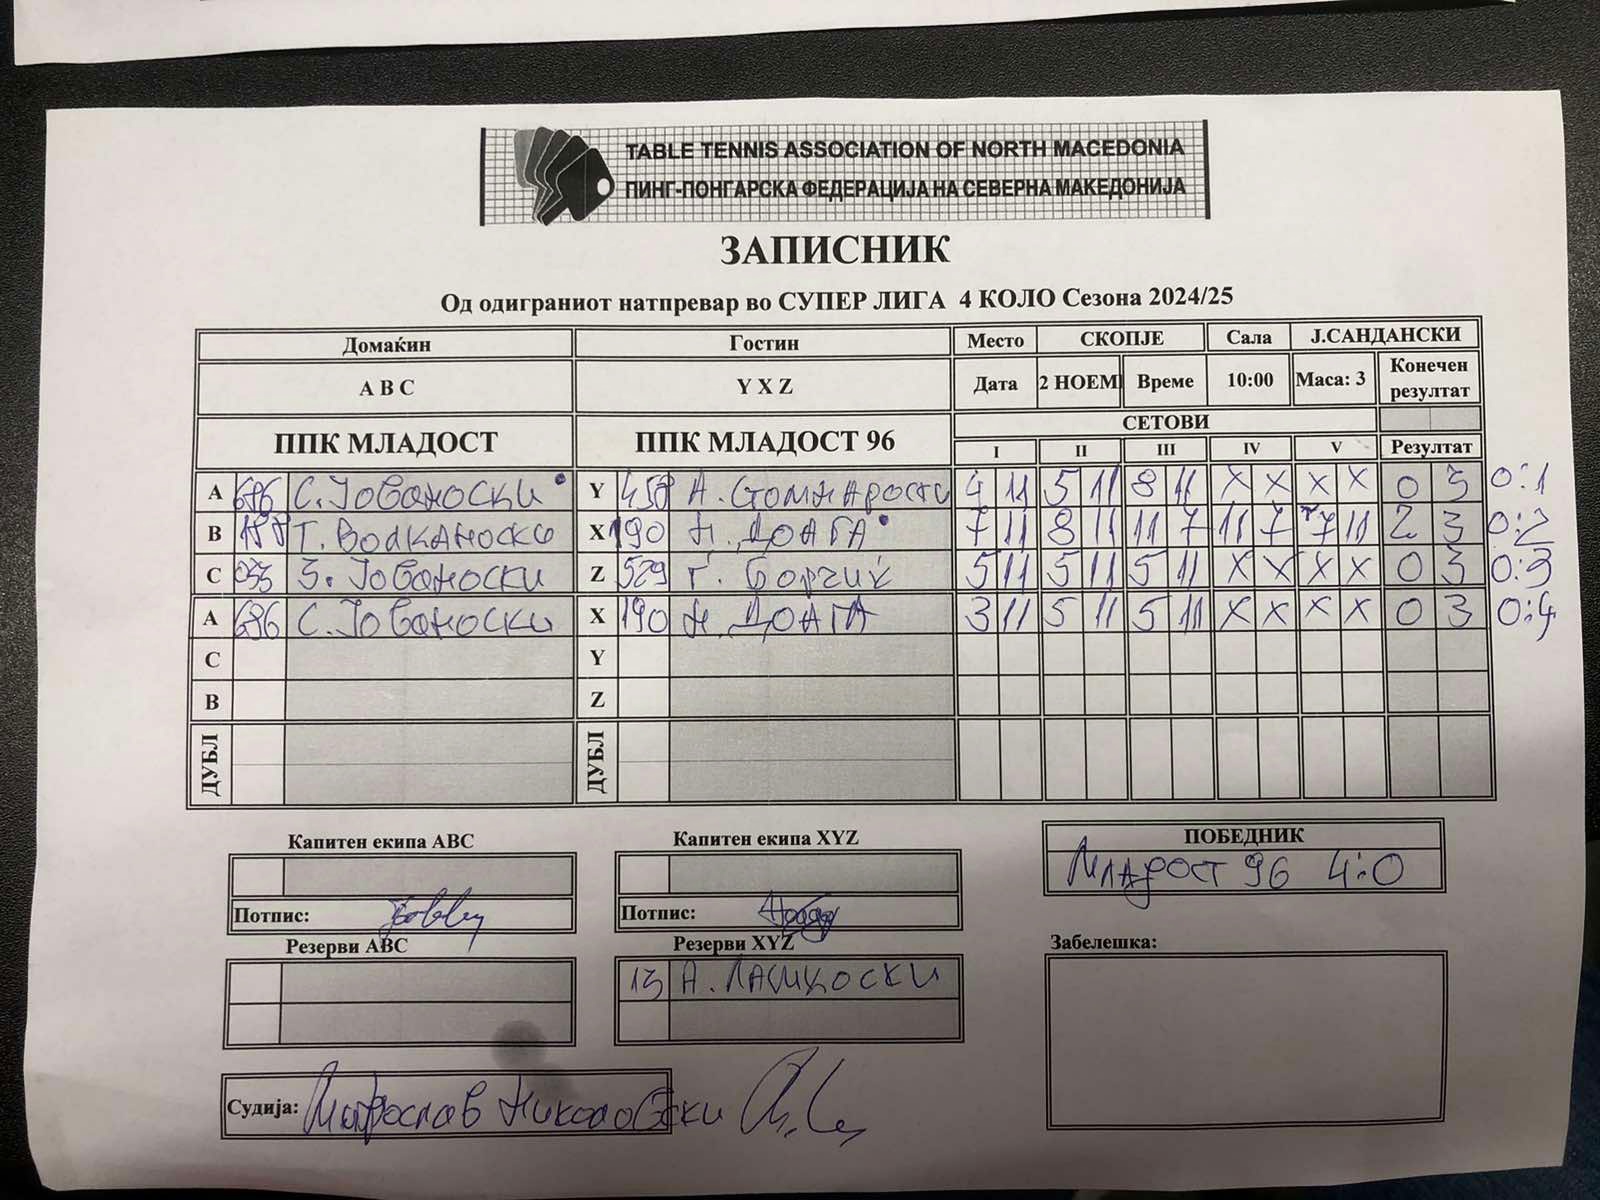 TABLE TENNIS ASSOCIATION OF NORTH MACEDONIA
ПИНГ-ПОНГАРСКА ФЕДЕРАЦИЈА НА СЕВЕРНА МАКЕДОНИЈА
ЗАПИСНИК
Од одиграниот натпревар во СУПЕР ЛИГА 4 КОЛО Сезона 2024/25
Домаќин Гостин Место СКОПЈЕ Сала Ј.САНДАНСКИ
A B C Y X Z Дата 2 НОЕМ Време 10:00 Маса: 3 Конечен резултат
ППК МЛАДОСТ ППК МЛАДОСТ 96 СЕТОВИ
I II III IV V Резултат
A 686 С. Јованоски Y 458 А. 4 11 5 11 8 11 X X X X 0 3 0:1
B 188 Т. Волканоски X 190 Н. ДОАГА 7 11 8 11 11 7 11 7 7 11 2 3 0:2
C 033 З. Јованоски Z 529 Г. Борчиќ 5 11 5 11 5 11 X X X X 0 3 0:3
A 686 С. Јованоски X 190 Н. ДОАГА 3 11 5 11 5 11 X X X X 0 3 0:4
C Y
B Z
ДУБЛ ДУБЛ
Капитен екипа ABC Капитен екипа XYZ ПОБЕДНИК
Младост 96 4:0
Потпис: Потпис:
Резерви ABC Резерви XYZ Забелешка:
13 А.
Судија: Николовски